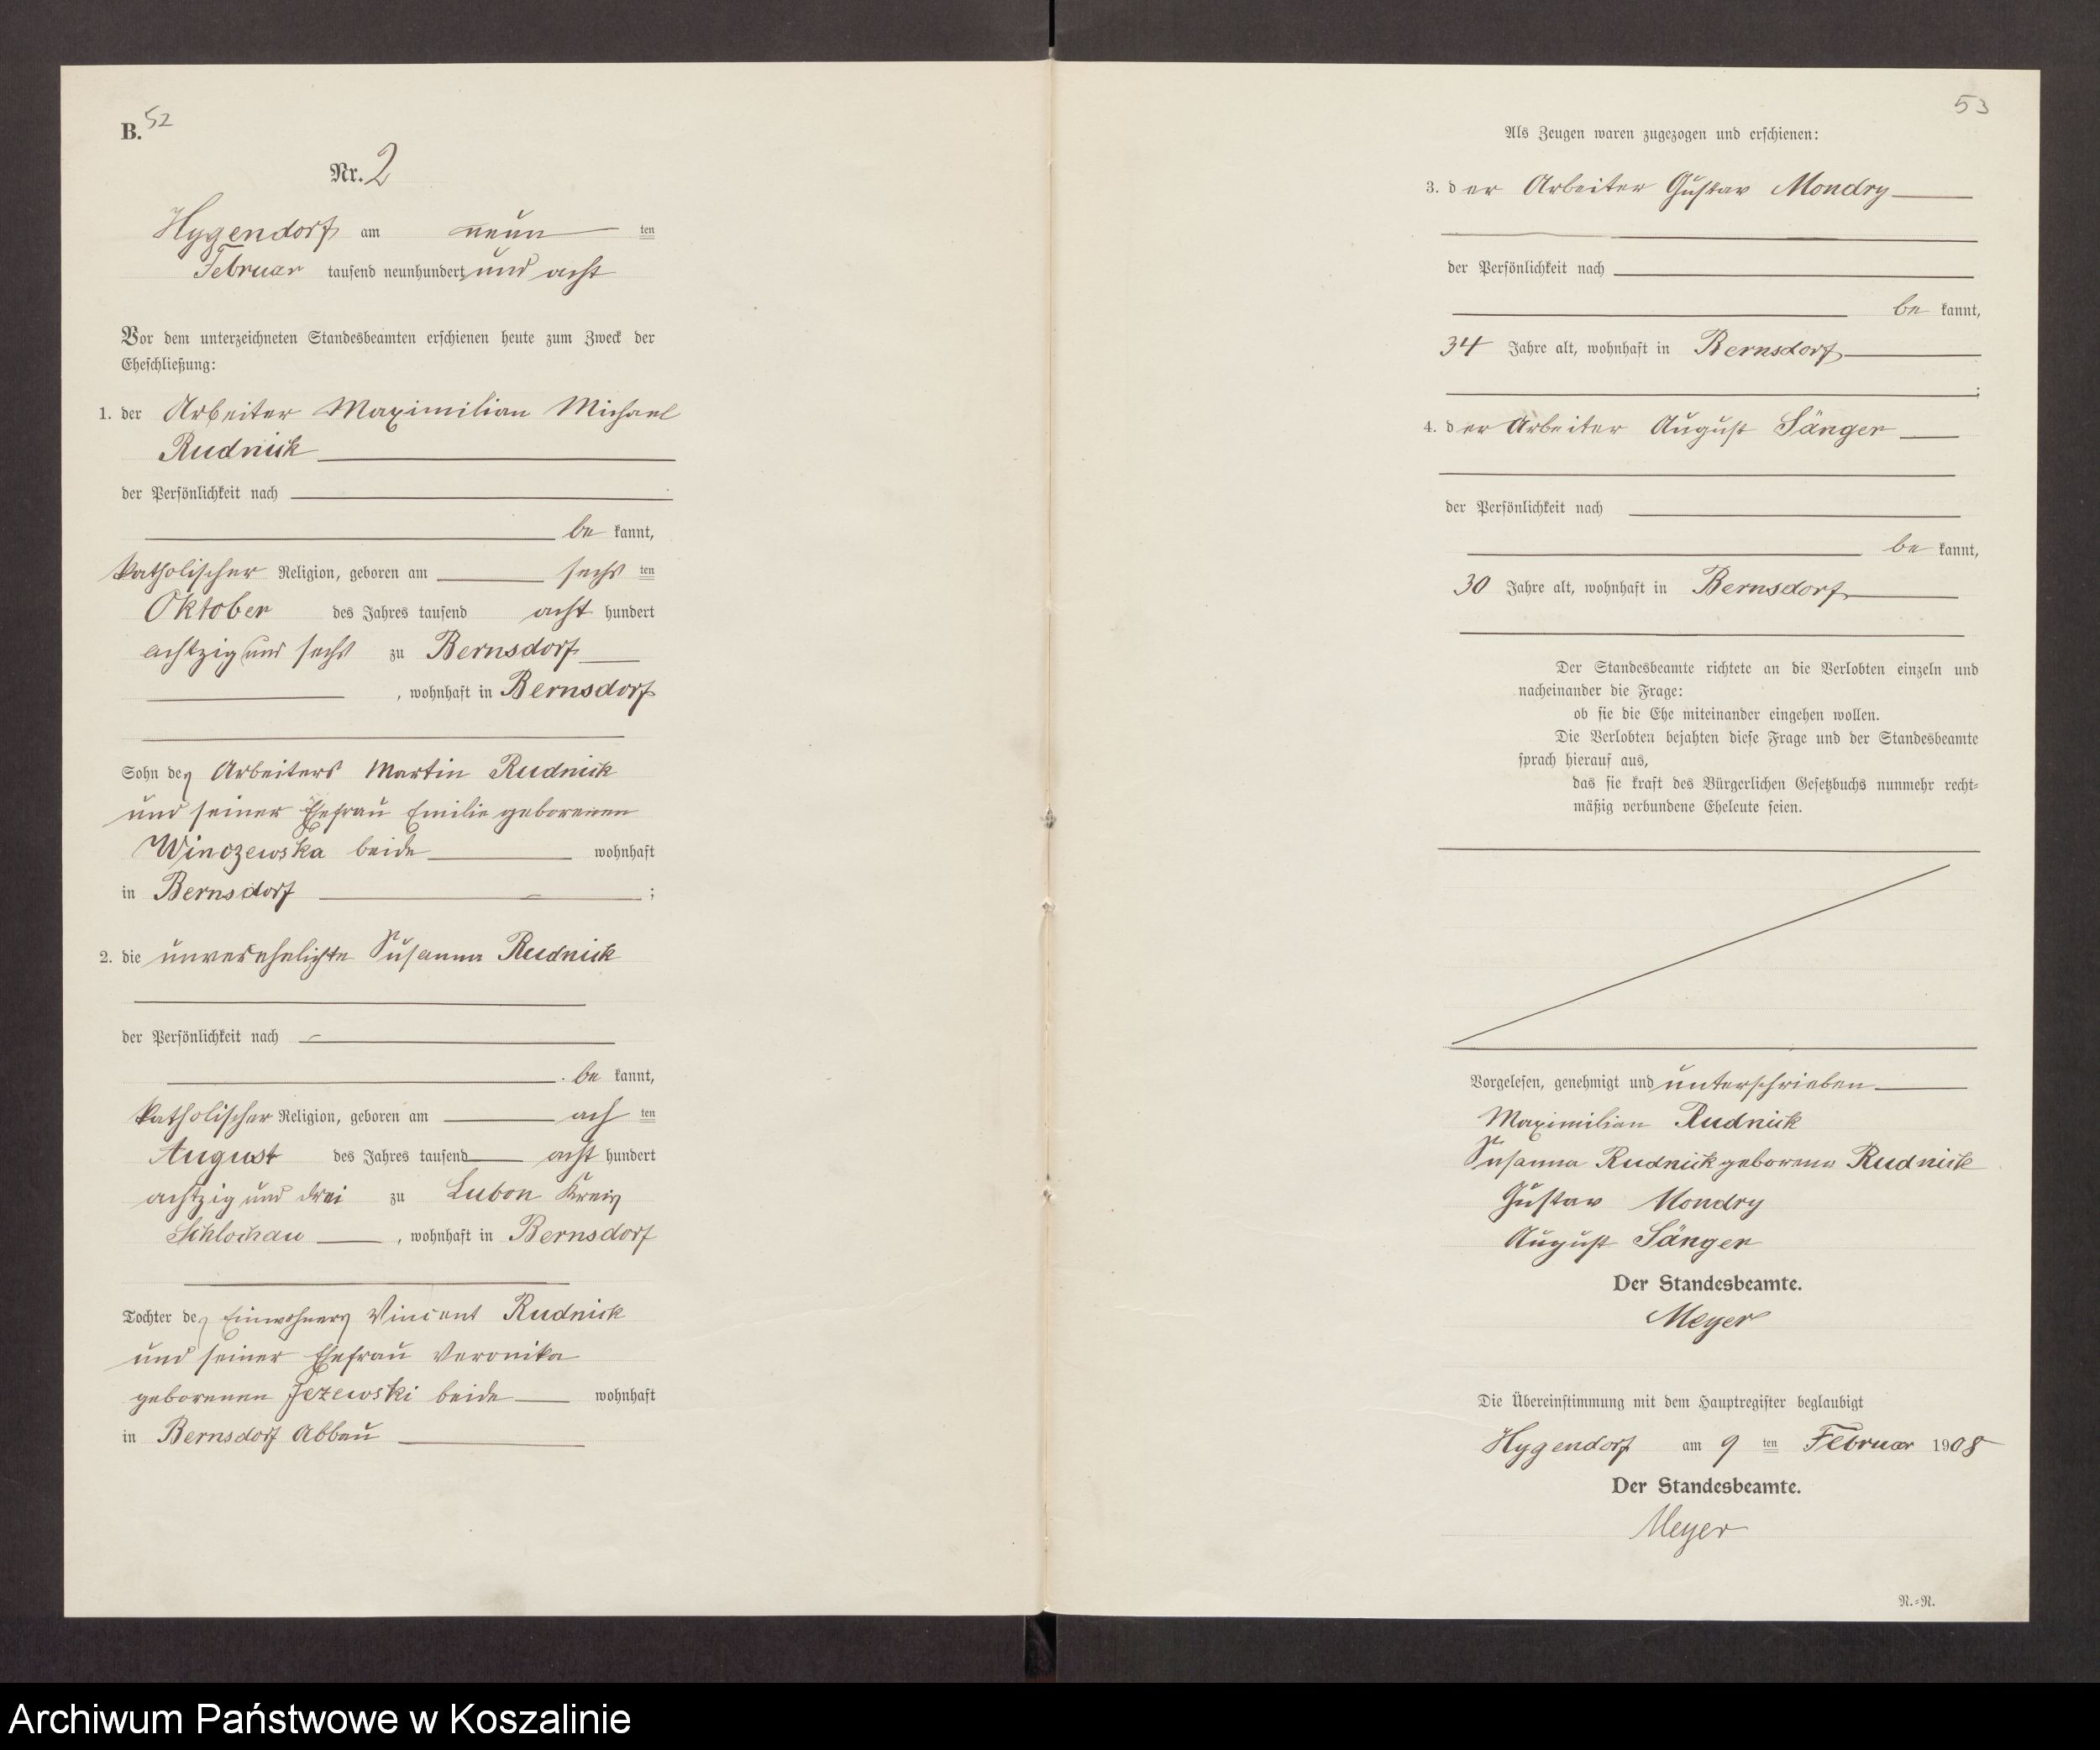 B. 52
Nr. 2
Hygendorf am neun ten
Februar tausend neunhundert und acht
Vor dem unterzeichneten Standesbeamten erschienen heute zum Zweck der
Eheschließung:
1. der Arbeiter Maximilian Michael
Rudnick
der Persönlichkeit nach
be kannt,
katholischer Religion, geboren am sechs ten
Oktober des Jahres tausend acht hundert
achtzig und sechs zu Bernsdorf
, wohnhaft in Bernsdorf
Sohn des Arbeiters Martin Rudnick
und seiner Ehefrau Emilie geborenen
Winczewska beide wohnhaft
in Bernsdorf ;
2. die unverehelichte Susanna Rudnick
der Persönlichkeit nach
be kannt,
katholischer Religion, geboren am ach ten
August des Jahres tausend acht hundert
achtzig und drei zu Lubon Kreis
Schlochau , wohnhaft in Bernsdorf
Tochter des Einwohners Vincent Rudnick
und seiner Ehefrau Veronika
geborenen Jezewski beide wohnhaft
in Bernsdorf Abbau
53
Als Zeugen waren zugezogen und erschienen:
3. der Arbeiter Gustav Mondry
der Persönlichkeit nach
be kannt,
34 Jahre alt, wohnhaft in Bernsdorf
;
4. der Arbeiter August Sänger
der Persönlichkeit nach
be kannt,
30 Jahre alt, wohnhaft in Bernsdorf
Der Standesbeamte richtete an die Verlobten einzeln und
nacheinander die Frage:
ob sie die Ehe miteinander eingehen wollen.
Die Verlobten bejahten diese Frage und der Standesbeamte
sprach hierauf aus,
das sie kraft des Bürgerlichen Gesetzbuchs nunmehr recht-
mäßig verbundene Eheleute seien.
Vorgelesen, genehmigt und unterschrieben
Maximilian Rudnick
Susanna Rudnick geborene Rudnick
Gustav Mondry
August Sänger
Der Standesbeamte.
Meyer
Die Übereinstimmung mit dem Hauptregister beglaubigt
Hygendorf am 9 ten Februar 1908
Der Standesbeamte.
Meyer
N.-R.
Archiwum Państwowe w Koszalinie